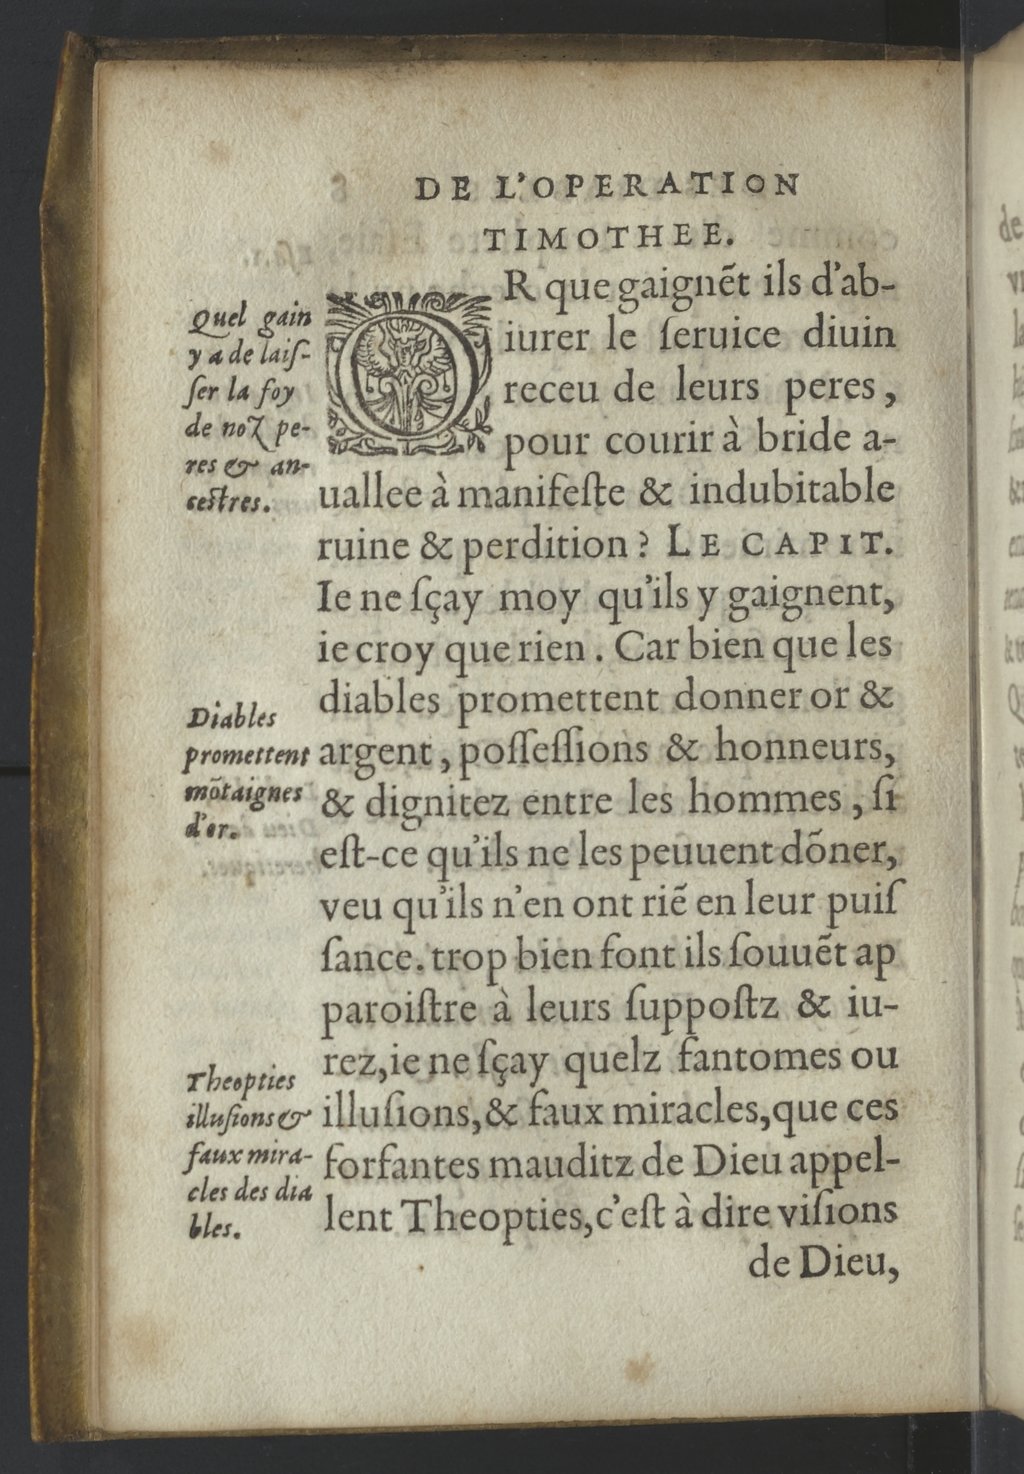 DE L'OPERATION
TIMOTHEE.
OR que gaignẽt ils d'ab-
iurer le ſeruice diuin
receu de leurs peres,
pour courir à bride a-
uallee à manifeſte & indubitable
ruine & perdition? LE CAPIT.
Ie ne ſçay moy qu'ils y gaignent,
ie croy que rien. Car bien que les
diables promettent donner or &
argent, poſſeſſions & honneurs,
& dignitez entre les hommes, ſi
eſt-ce qu'ils ne les peuuent dõner,
veu qu'ils n'en ont riẽ en leur puiſ
ſance. trop bien font ils ſouuẽt ap
paroiſtre à leurs ſuppoſtz & iu-
rez, ie ne ſçay quelz fantomes ou
illuſions, & faux miracles, que ces
forfantes mauditz de Dieu appel-
lent Theopties, c'eſt à dire viſions
de Dieu,
Quel gain
y a de laiſ-
ſer la foy
de noz pe-
res & an-
ceſtres.
Diables
promettent
mõtaignes
d'or.
Theopties
illuſions &
faux mira-
cles des dia
bles.